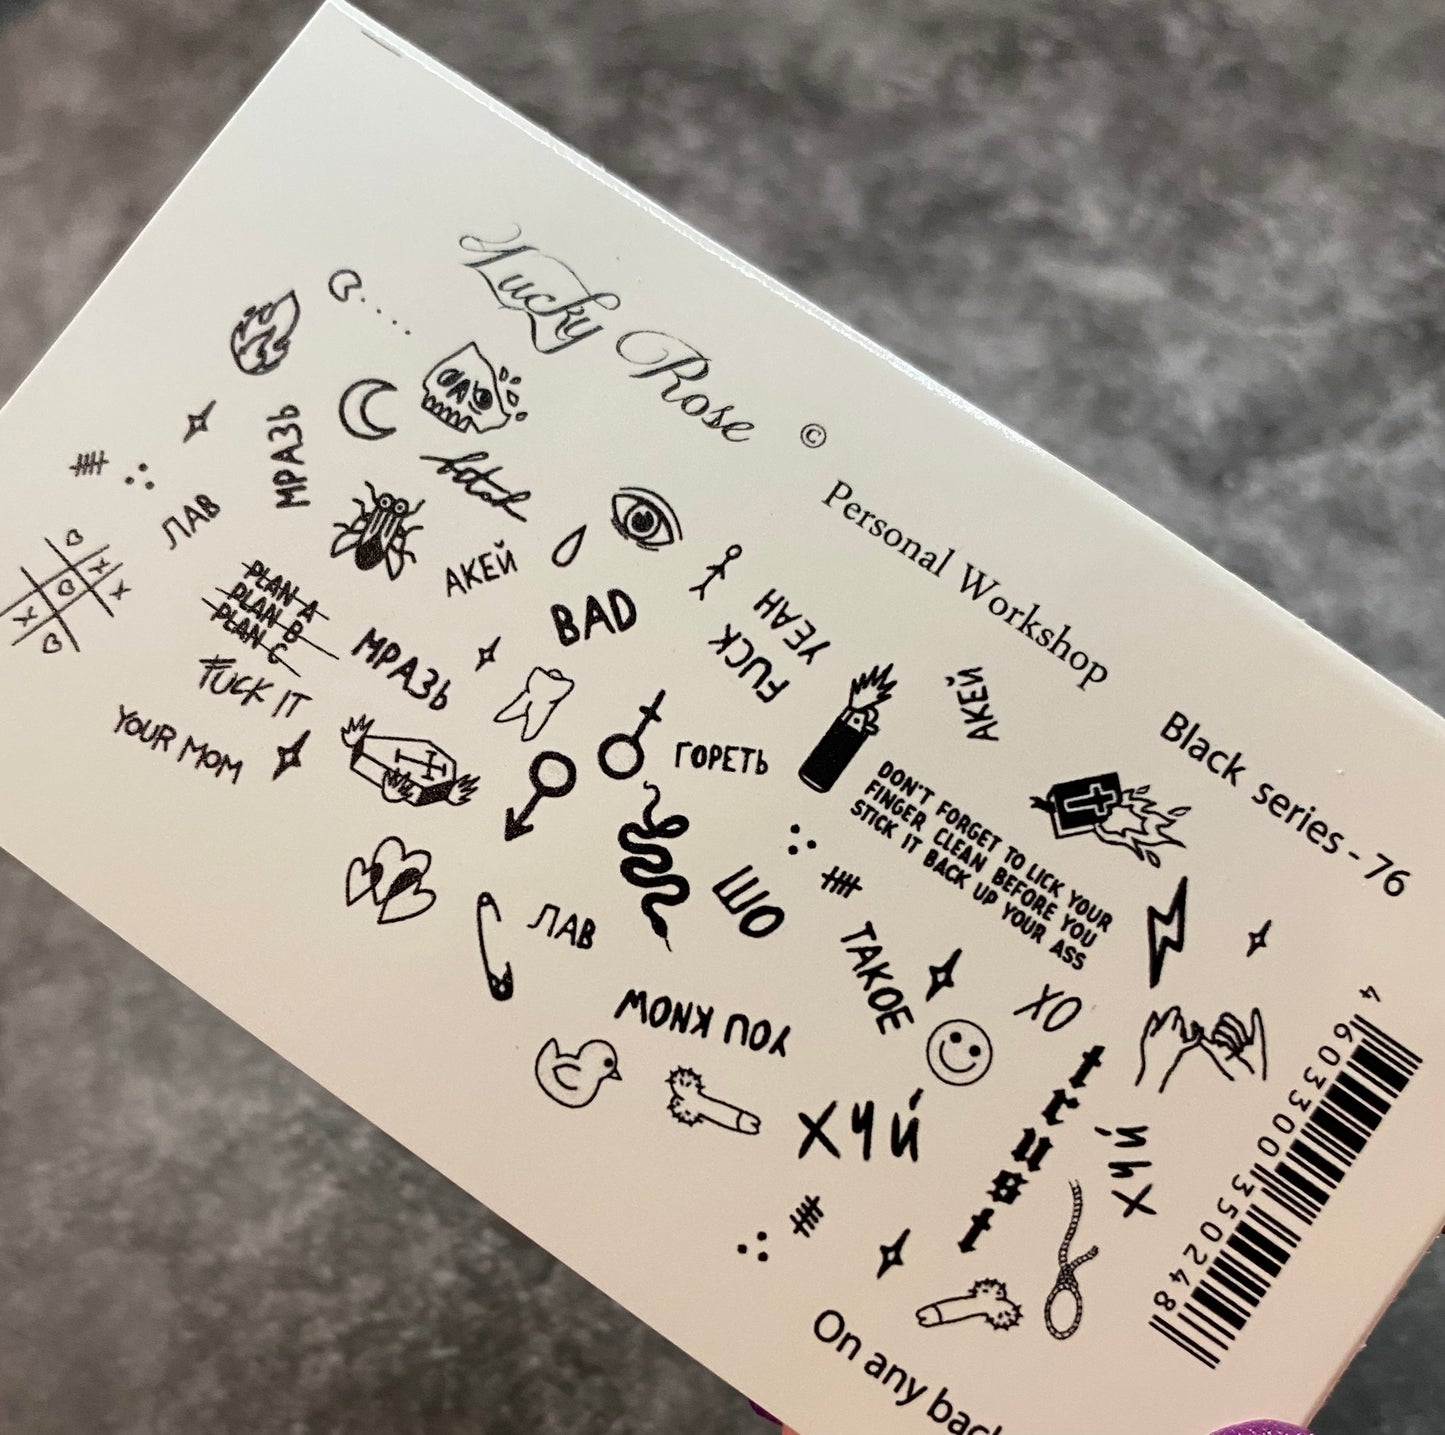 Lucky Rose ©
Personal Workshop
Black series - 76
МРАЗЬ
ЛАВ
АКЕЙ
BAD
FUCK
YEAH
АКЕЙ
PLAN A
PLAN B
PLAN C
FUCK IT
YOUR MOM
МРАЗЬ
ГОРЕТЬ
DON'T FORGET TO LICK YOUR
FINGER CLEAN BEFORE YOU
STICK IT BACK UP YOUR ASS
ЛАВ
ШО
ТАКОЕ
XO
YOU KNOW
ХУЙ
trust
ХУЙ
4 603300 350248
On any back